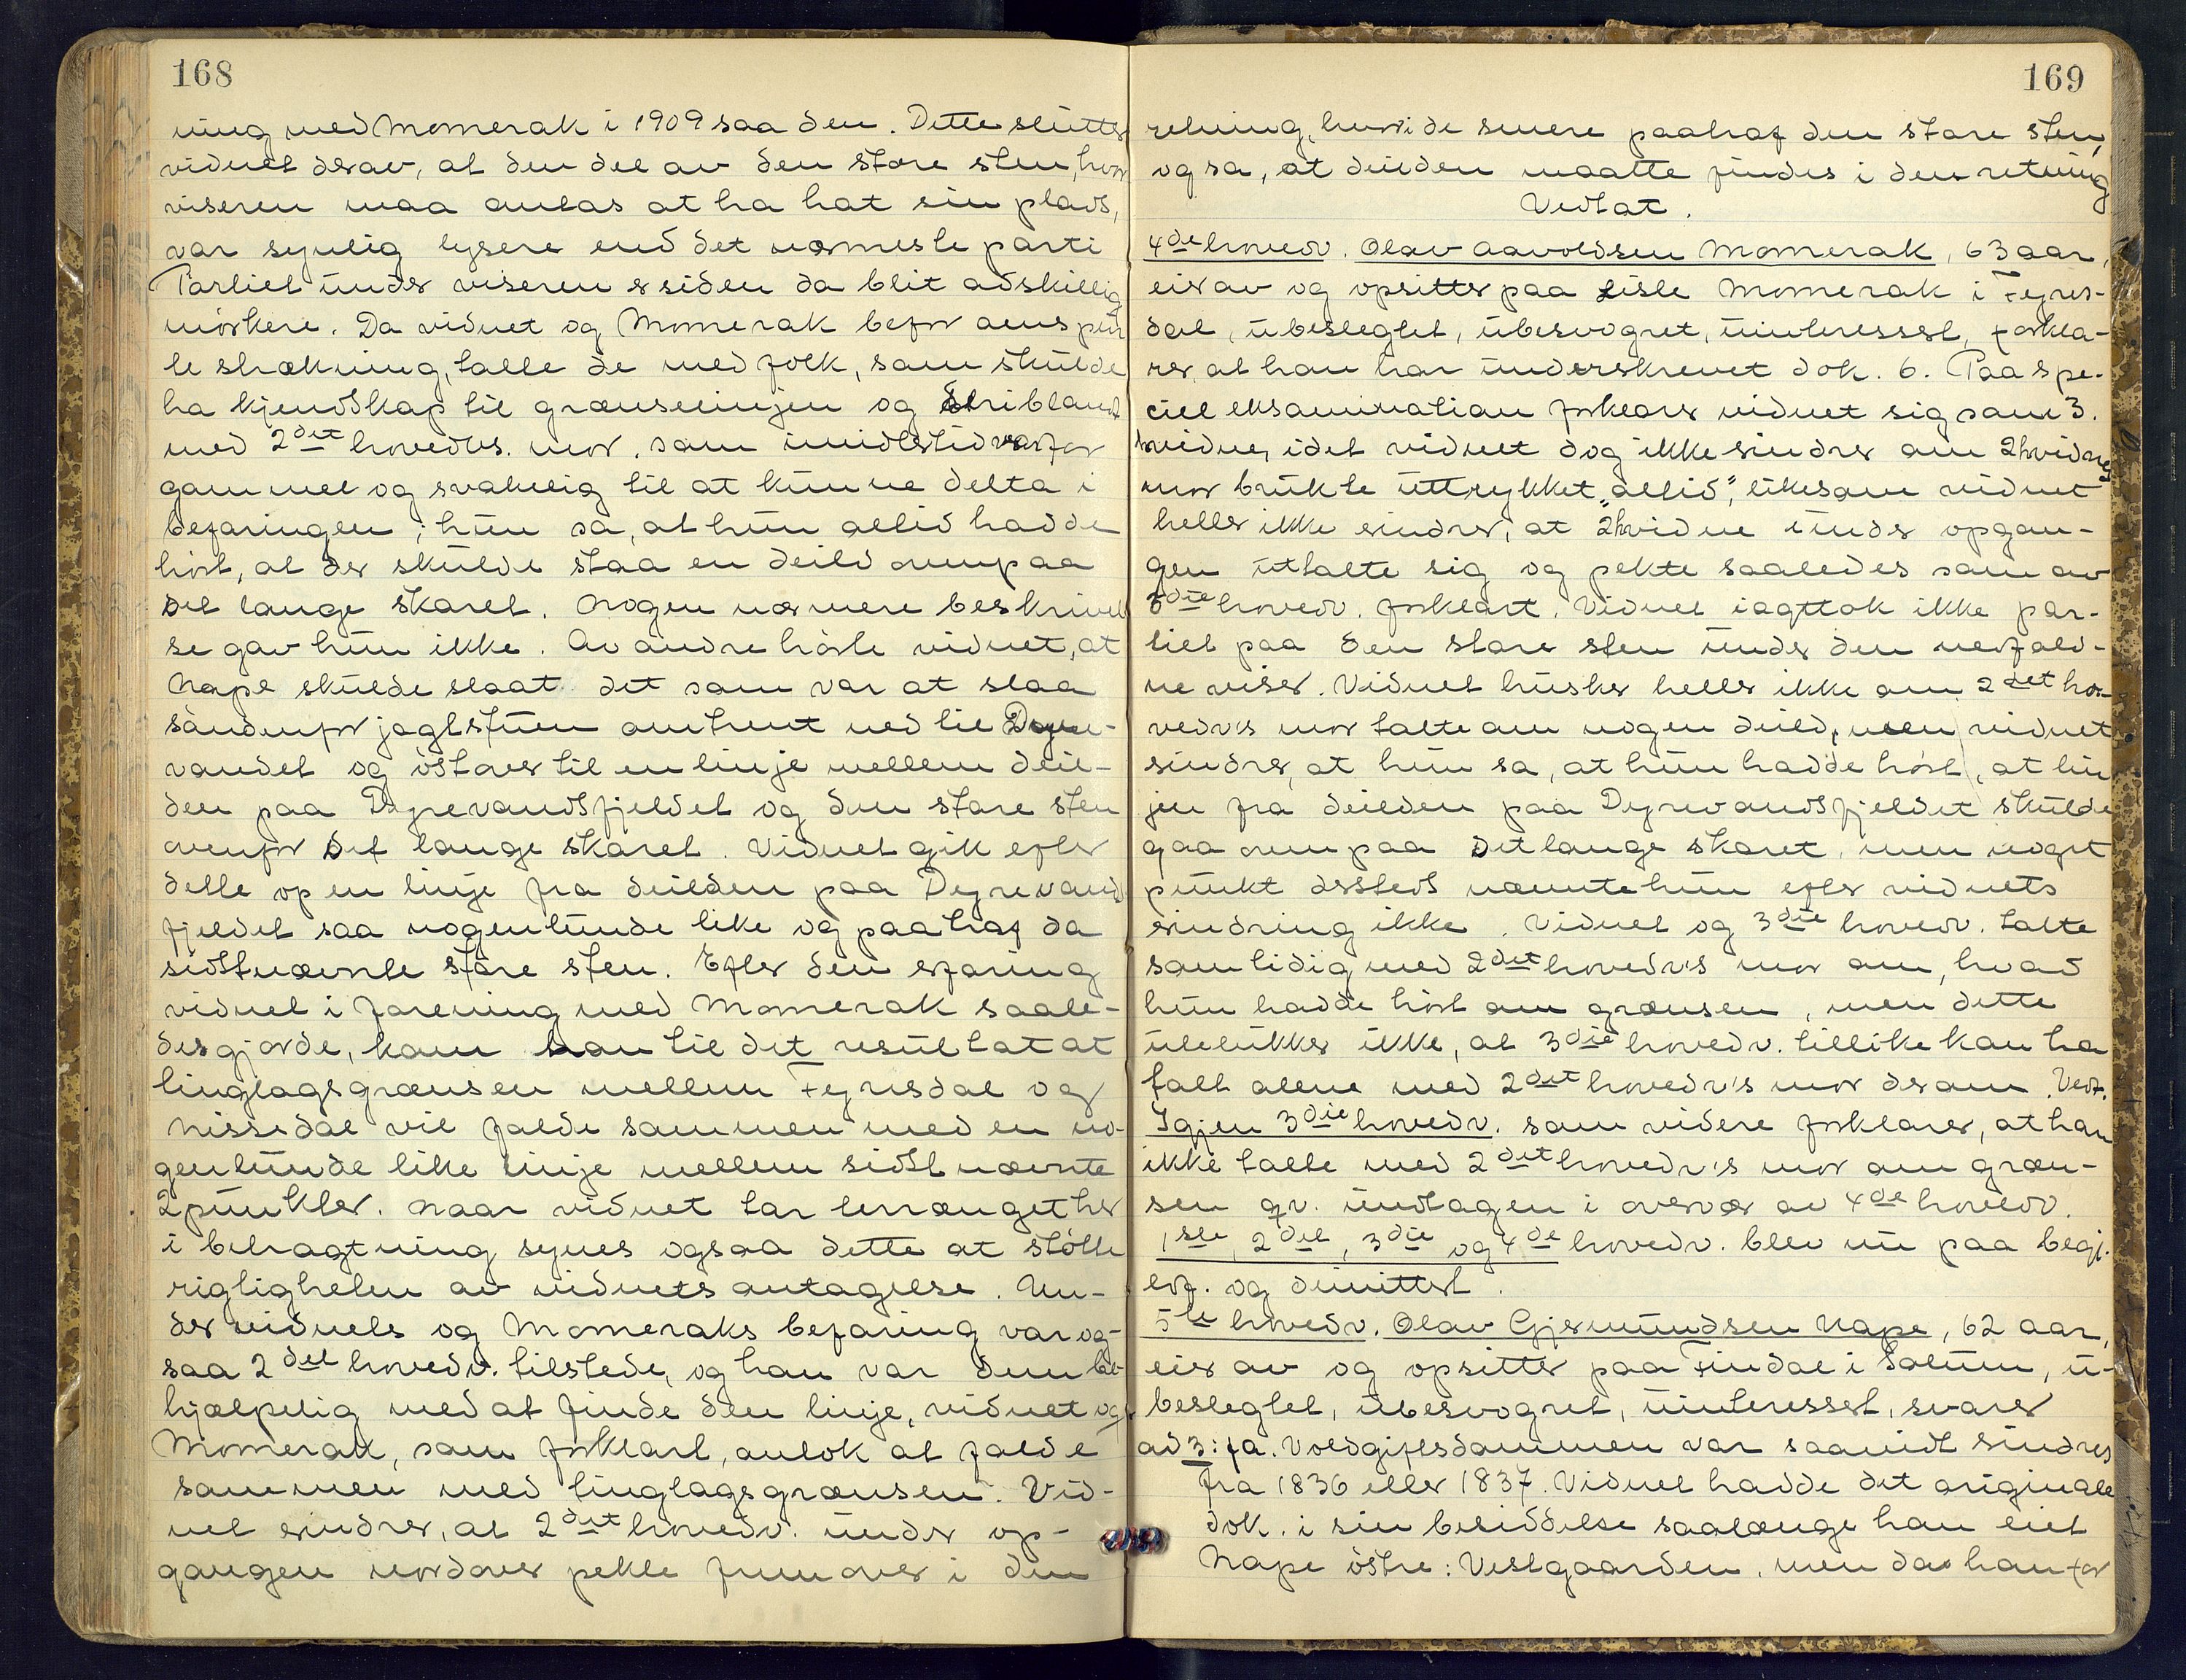 168
ning med Momerak i 1909 saa den. Dette slutter
vidnet derav, at den del av den store sten, hvor
viseren maa antas at ha hat sin plads,
var synlig lysere end det nærmeste parti
Partiet under viseren er siden da blit adskillig
mörkere. Da vidnet og Momerak befor
te strækning, talte de med folk, som skulde
ha kjendskap til grænselinjen og bland
med 2det hovedvs. mor, som imidlertid var for
gammel og svakelig til at kunne delta i
befaringen; hun sa, at hun altid hadde
hört, at der skulde staa en deild ovenpaa
det lange skaret. Nogen nærmere beskrivel
se gav hun ikke. Av andre hörte vidnet, at
Nape skulde slaat det som var at slaa
söndenfor jagtstuen omtrent ned til Dyre-
vandet og östover til en linje mellem deil-
den paa Dyrevandsfjeldet og den store sten
ovenfor det lange skaret. Vidnet gik efter
dette op en linje fra deilden paa Dyrevands
fjeldet saa nogenlunde like og paatraf da
sidstnævnte store sten. Efter den erfaring
vidnet i forening med Momerak saale-
des gjorde, kom han til det resultat at
tinglagsgrænsen mellem Fyresdal og
Nissedal vil falde sammen med en no-
genlunde like linje mellem sidstnævnte
2 punkter. Naar vidnet tar terrænget her
i betragtning synes ogsaa dette at stötte
rigtigheten av vidnets antagelse. Un-
der vidnets og Momeraks befaring var og-
saa 2det hovedv. tilstede, og han var dem be-
hjælpelig med at finde den linje, vidnet og
Momerak, som forklart, antok at falde
sammen med tinglagsgrænsen. Vid-
net erindrer, at 2det hovedv. under op-
gangen nordover pekte fremover i den
169
retning, hvori de senere paatraf den store sten,
og sa, at deilden maatte findes i den retning
Vedtat.
4de hovedv. Olav Aavoldsen Momerak, 63 aar,
eier av og opsitter paa Lisle Momerak i Fyres-
dal, ubeslegtet, ubesvogret, uinteressert, forkla-
rer, at han har underskrevet dok. 6. Paa spe-
ciel eksamination forklarer vidnet sig som 3.
hvidne, idet vidnet dog ikke erindrer om 2 hvidnes
mor brukte uttrykket "altid", likesom vidnet
heller ikke erindrer, at 2 hvidne under opgan-
gen uttalte sig og pekte saaledes som av
3die hovedv. forklart. Vidnet iagttok ikke par-
tiet paa den store sten under den nedfald-
ne viser. Vidnet husker heller ikke om 2det ho-
vedv's mor talte om nogen deild, men vidnet
erindrer, at hun sa, at hun hadde hört, at lin
jen fra deilden paa Dyrevandsfjeldet skulde
gaa ovenpaa det lange skaret, men noget
punkt dersteds nævnte hun efter vidnets
erindring ikke. Vidnet og 3die hovedv. talte
samtidig med 2det hovedv's mor om, hvad
hun hadde hört om grænsen, men dette
utelukker ikke, at 3die hovedv. tillike kan ha
talt alene med 2det hovedv's mor derom. Vedt.
Igjen 3die hovedv. som videre forklarer, at han
ikke talte med 2det hovedv's mor om græn-
sen qv. undtagen i overvær av 4de hovedv.
1ste, 2det, 3die og 4de hovedv. blev nu paa begj.
edf. og dimittert.
5te hovedv. Olav Gjermundsen Nape, 62 aar,
eier av og opsitter paa Findal i Solum, u-
beslegtet, ubesvogret, uinteressert, svarer
ad 3: ja. Voldgiftsdommen var saavidt erindres
fra 1836 eller 1837. Vidnet hadde det originale
dok. i sin besiddelse saalænge han eiet
Nape östre: Vestgaarden, men da han for